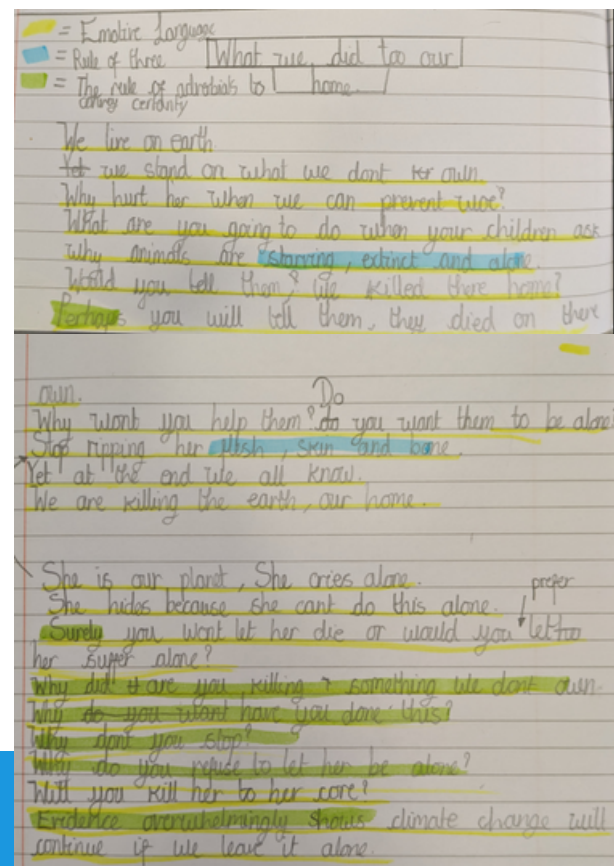 = Emotive Language
= Rule of three
What we did too our
= The rule of adverbials to
home.
convey certainty
We live on earth
Yet we stand on what we dont own.
Why hurt her when we can prevent woe?
What are you going to do when your children ask
why animals are starving, extinct and alone.
Would you tell them, we killed there home?
Perhaps you will tell them, they died on there
own.
Do
Why wont you help them? do you want them to be alone?
Stop ripping her flesh, skin and bone.
Yet at the end we all know.
We are killing the earth, our home.
She is our planet, She cries alone.
prefer
She hides because she cant do this alone.
Surely you wont let her die or would you let too
her suffer alone?
Why did are you killing something we dont own.
Why do you want have you done this?
Why dont you stop?
Why do you refuse to let her be alone?
Will you kill her to her core?
Evidence overwhelmingly shows climate change will
continue if we leave it alone.